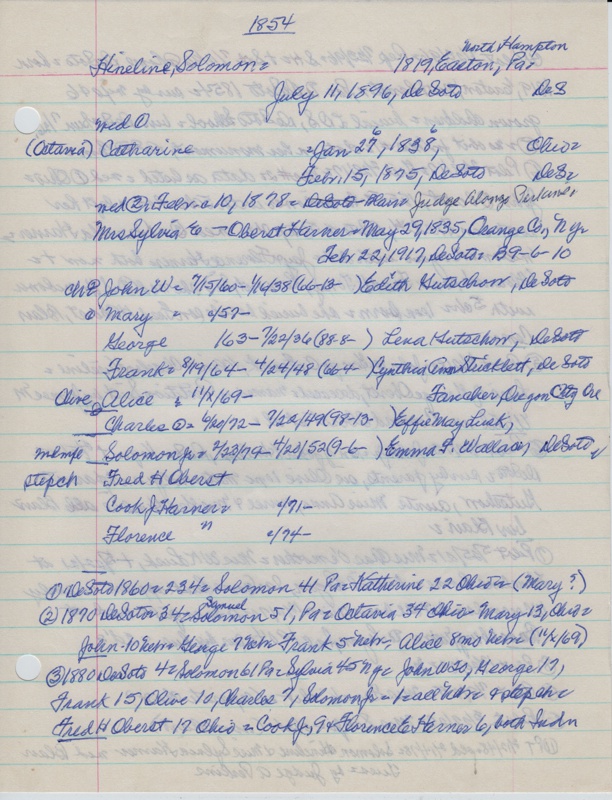 1854
North Hampton
Hineline, Solomon = 1819, Easton, Pa=
July 11, 1896, DeSoto DeS
med ①
(Octavia) Catharine =Jan 27, 1838, Ohio=
Feb. 15, 1875, DeSoto DeS=
med ②= Febr. 10, 1878= DeSoto Judge Alonzo Perkins,
Mrs Sylvia E - Oberst Harner= May 29, 1835, Orange Co, N Y=
Febr 22, 1917, DeSoto= D9-6-10
ch= John W= 7/15/60- 1/16/38(66-13- )Edith Gutschow, DeSoto
Mary = c/57-
George 163- 7/22/36(88-8- ) Lena Gutschow, DeSoto
Frank= 8/19/64- 4/24/48(66-4 )Cynthia Ann Stricklett, DeSoto
Olive, Alice = 11/x/69- Fancher, Oregon City Ore
Charles = 4/20/72- 7/20/49(98-13- )Effie May Lusk,
Solomon Jr= 2/23/79- 4/20/52(9-6- )Emma F. Wallace, DeSoto
stepch Fred H Oberst
Cook J Harner= c/71-
Florence " c/74-
① DeSoto 1860= 234= Solomon 41 Pa= Katherine 22 Ohio= (Mary?)
② 1870 DeSoto= 34= Solomon Samuel 51, Pa= Octavia 34 Ohio- Mary 13, Ohio=
John- 10 Nebr= George 7 Nebr- Frank 5 Nebr, Alice 8mo Nebr= (11/x/69)
③ 1880 DeSoto 4= Solomon 61 Pa= Sylvia 45 NY= John W 20, George 17,
Frank 15, Olive 10, Charles 7, Solomon Jr= 1- all Nebr & stepch=
Fred H Oberst 17 Ohio= Cook J, 9 & Florence E Harner 6, both Indn